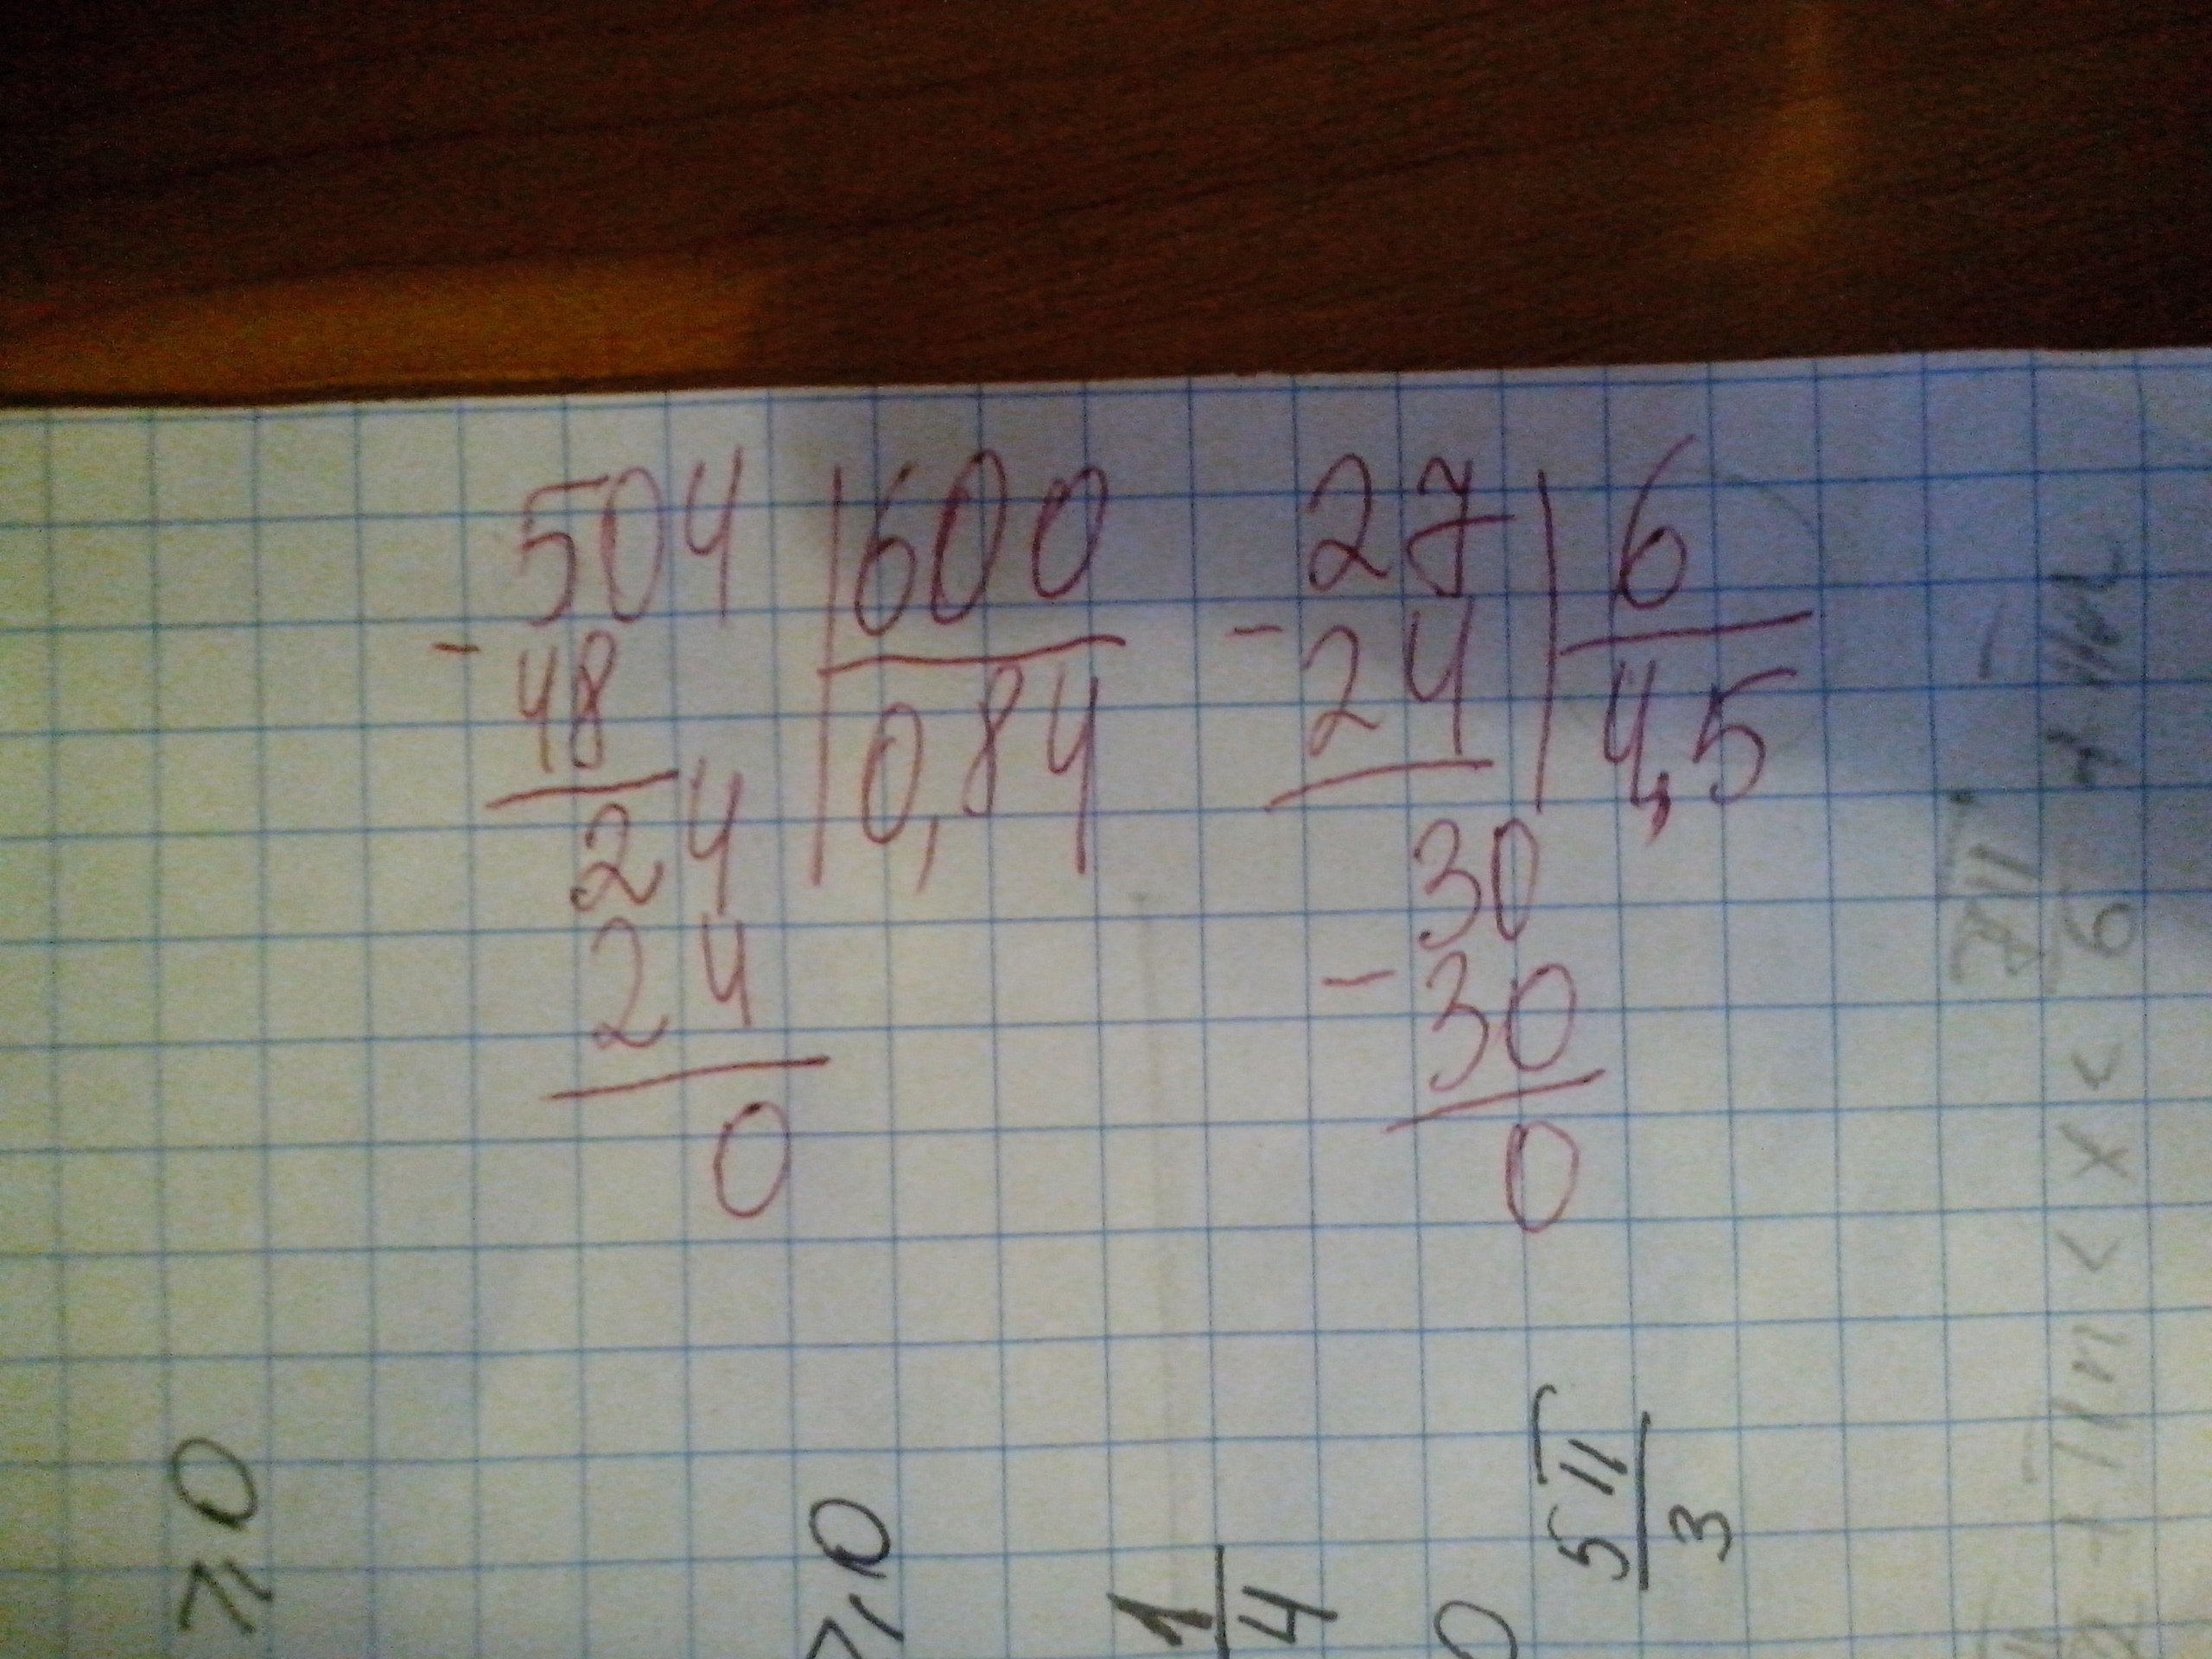 504 | 600
- 48 | 0,84
24
24
0
27 | 6
- 24 | 4,5
30
- 30
0
≥ 0
≥ 0
1/4
5π/3